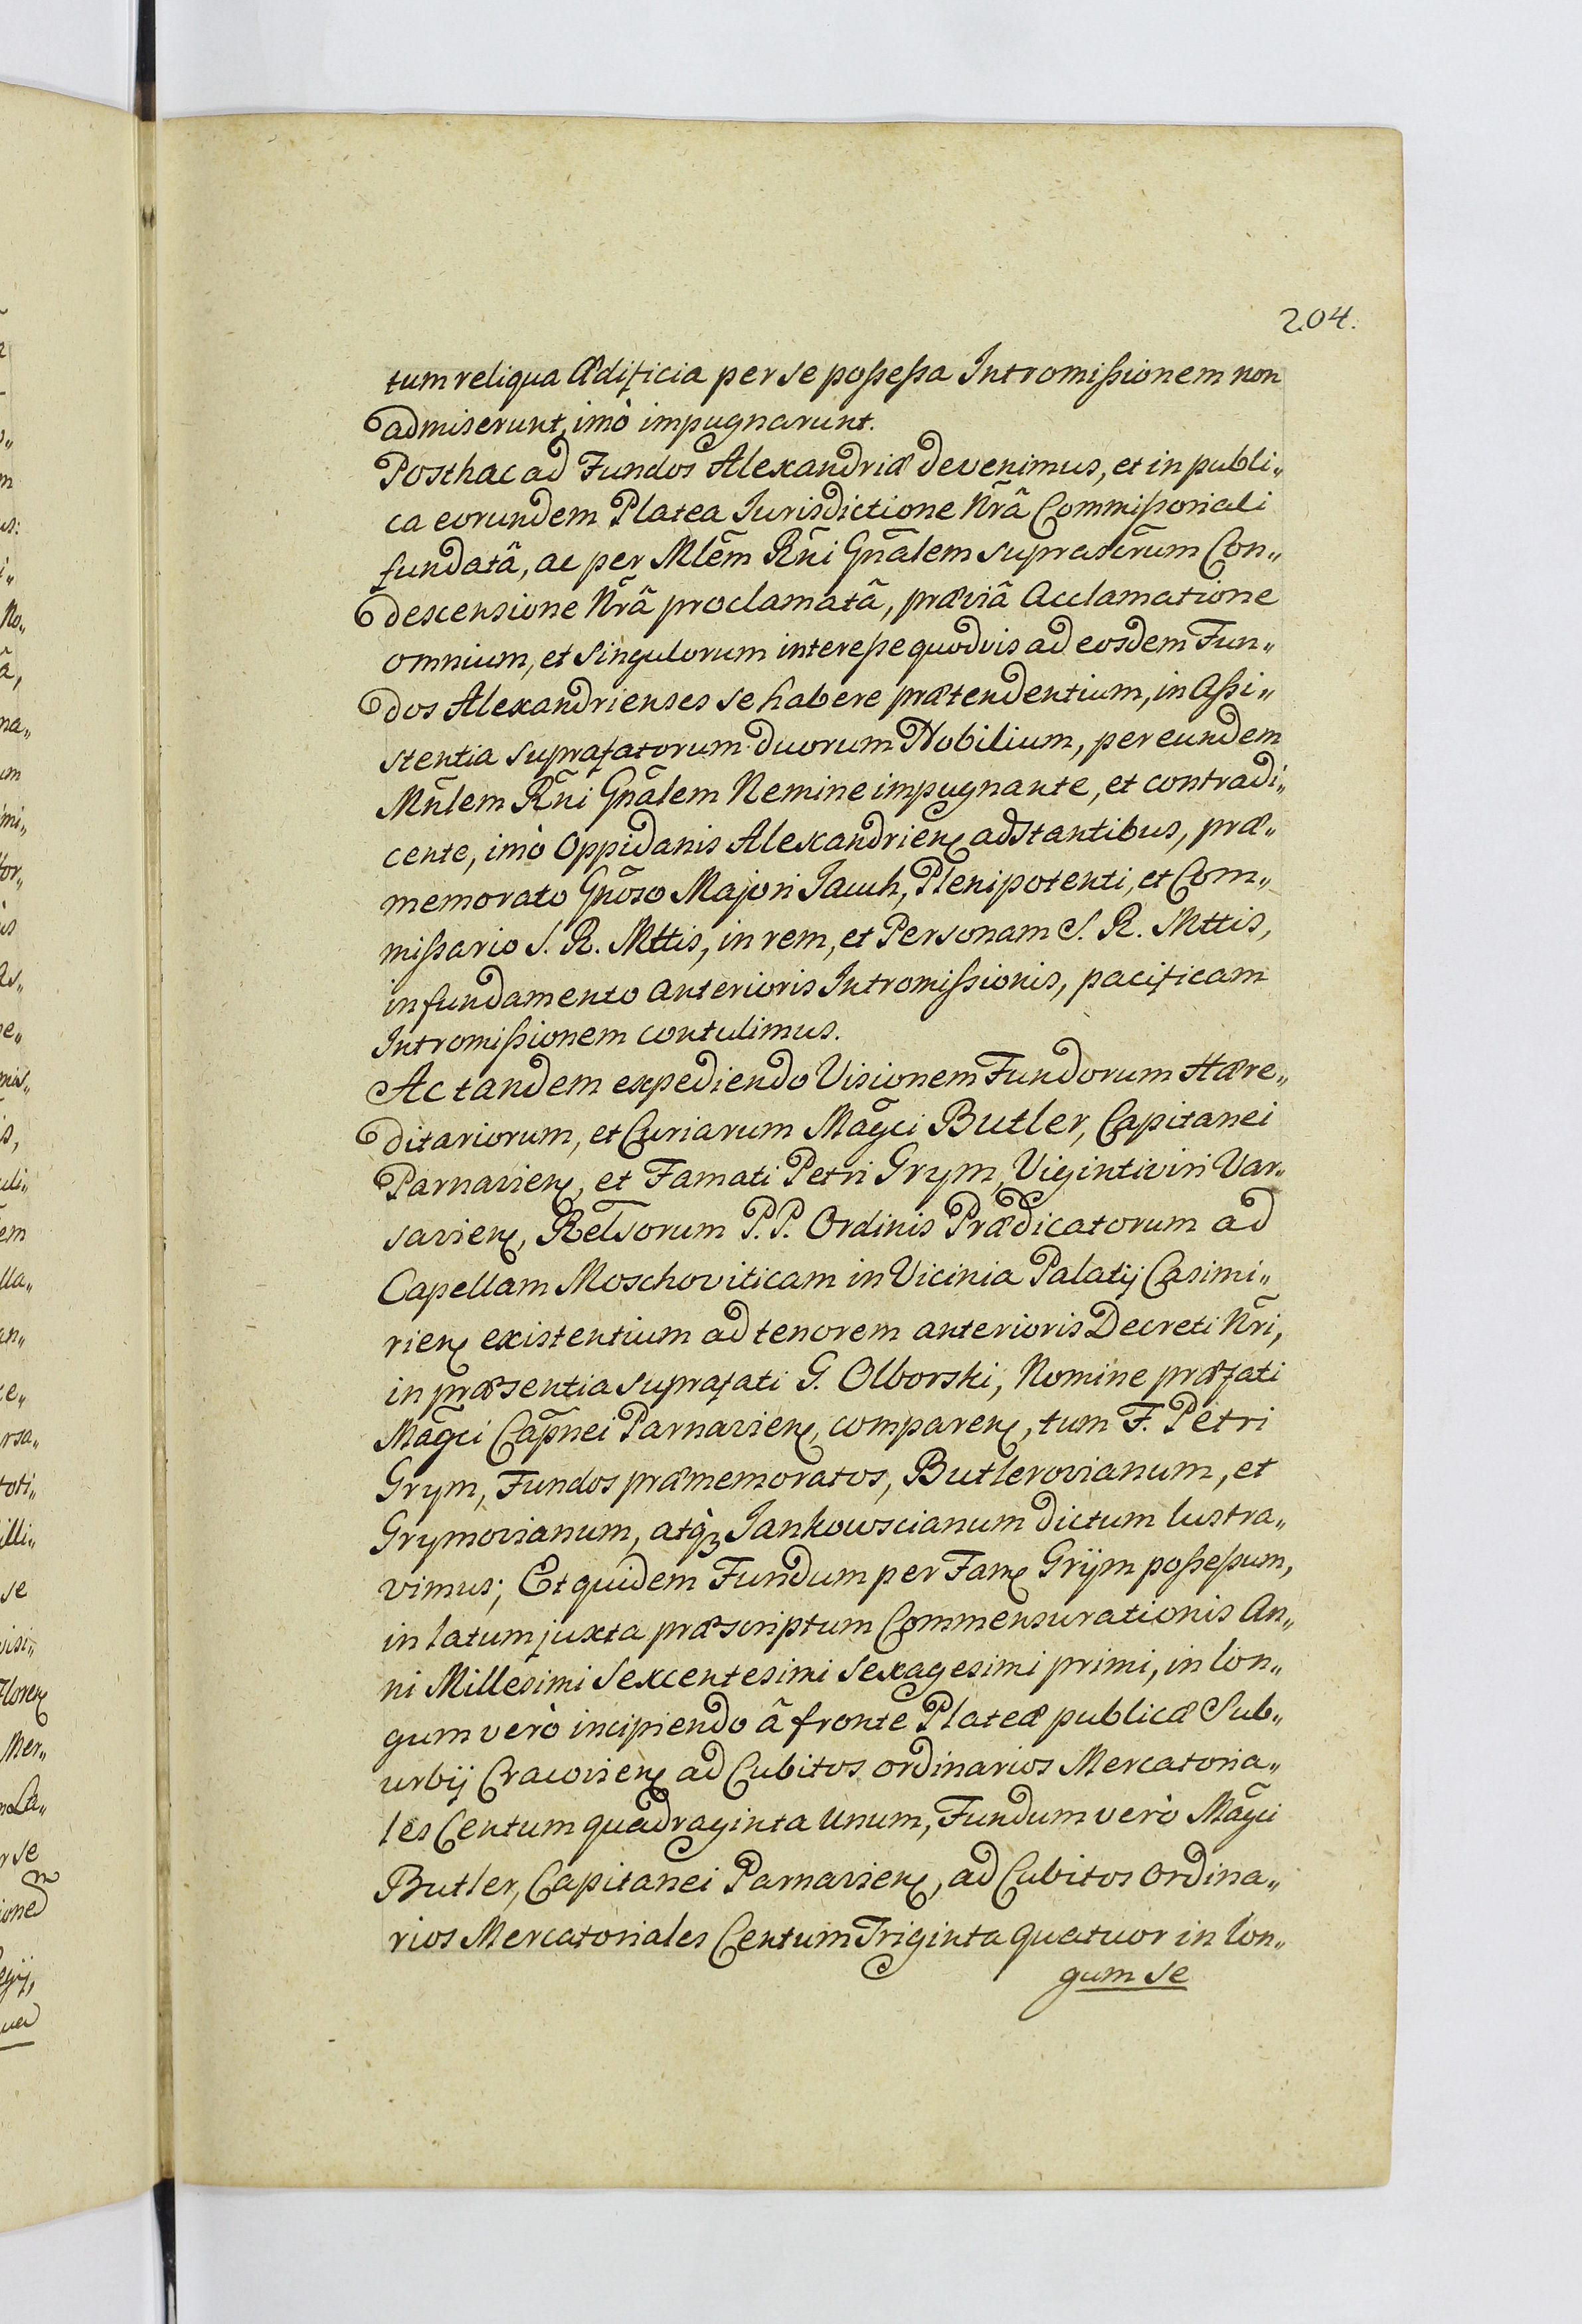 204.
tum reliqua Ædificia per se possessa Intromissionem non
admiserunt, imò impugnarunt.
Posthac ad Fundos Alexandriæ devenimus, et in publi„
ca eorundem Platea Iurisdictione Nr̃â Commissoriali
fundatâ, ac per Mlẽm Rñi Gñalem supradẽrum Con„
descensione Nr̃â proclamatâ, præviâ Acclamatione
omnium, et singulorum interesse quodvis ad eosdem Fun„
dos Alexandrienses se habere prætendentium, in Assi„
stentia suprafatorum duorum Nobilium, per eundem
Mñlem Rñi Gñalem Nemine impugnante, et contradi„
cente, imò Oppidanis Alexandrienȩ adstantibus, præ„
memorato Gñoso Majori Jauch, Plenipotenti, et Com„
missario S. R. Mttis, in rem, et Personam S. R. Mttis,
in fundamento anterioris Intromissionis, pacificam
Intromissionem contulimus.
Ac tandem expediendo Visionem Fundorum Hære„
ditariorum, et Curiarum Mag̃ci Butler, Capitanei
Parnavienȩ, et Famati Petri Grym, Vigintiviri Var„
savienȩ, Rel̃sorum P.P. Ordinis Prædicatorum ad
Capellam Moschoviticam in Vicinia Palatij Casimi„
rienȩ existentium ad tenorem anterioris Decreti Nr̃i,
in præsentia suprafati G. Olborski, Nomine præfati
Mag̃ci Cap̃nei Parnavienȩ, comparenȩ, tum F. Petri
Grym, Fundos præmemoratos, Butlerovianum, et
Grymovianum, atq̃ꝫ Jankowscianum dictum lustra„
vimus; Et quidem Fundum per Famȩ Grÿm possessum,
in latum juxta præscriptum Commensurationis An„
ni Millesimi Sexcentesimi Sexagesimi primi, in lon„
gum verò incipiendo â fronte Plateæ publicæ Sub„
urbij Cracovienȩ ad Cubitos ordinarios Mercatoria„
les Centum quadraginta Unum, Fundum verò Mag̃ci
Butler, Capitanei Parnavienȩ, ad Cubitos Ordina„
rios Mercatoriales Centum Triginta quatuor in lon„
gum se